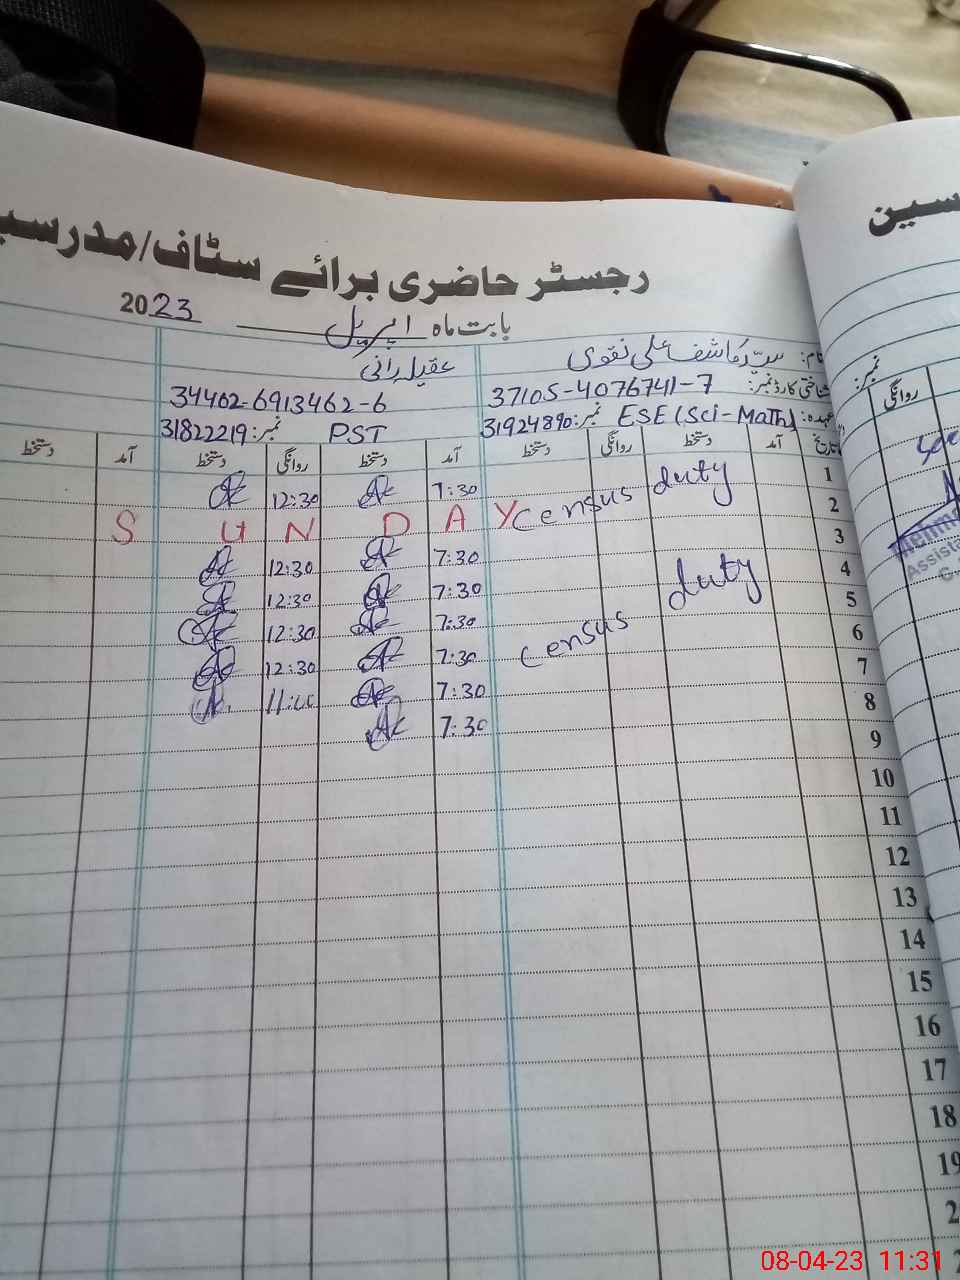 رجسٹر حاضری برائے سٹاف/مدرسین
بابت ماہ اپریل 2023
نام: سید کاشف علی نقوی عقیلہ رانی
شناختی کارڈ نمبر: 37105-4076741-7 34402-6913462-6
عہدہ: ESE (Sci-Math) نمبر: 31924890 PST نمبر: 31822219
تاریخ آمد دستخط روانگی دستخط آمد دستخط روانگی دستخط آمد دستخط
1 7:30 12:30
2 census duty SUNDAY
3 7:30 12:30
4 7:30 12:30
5 7:30 12:30
6 census duty 7:30 12:30
7 7:30
8 7:30
9
10
11
12
13
14
15
16
17
18
19
سین
نمبر:
روانگی
Assista
G.
08-04-23 11:31